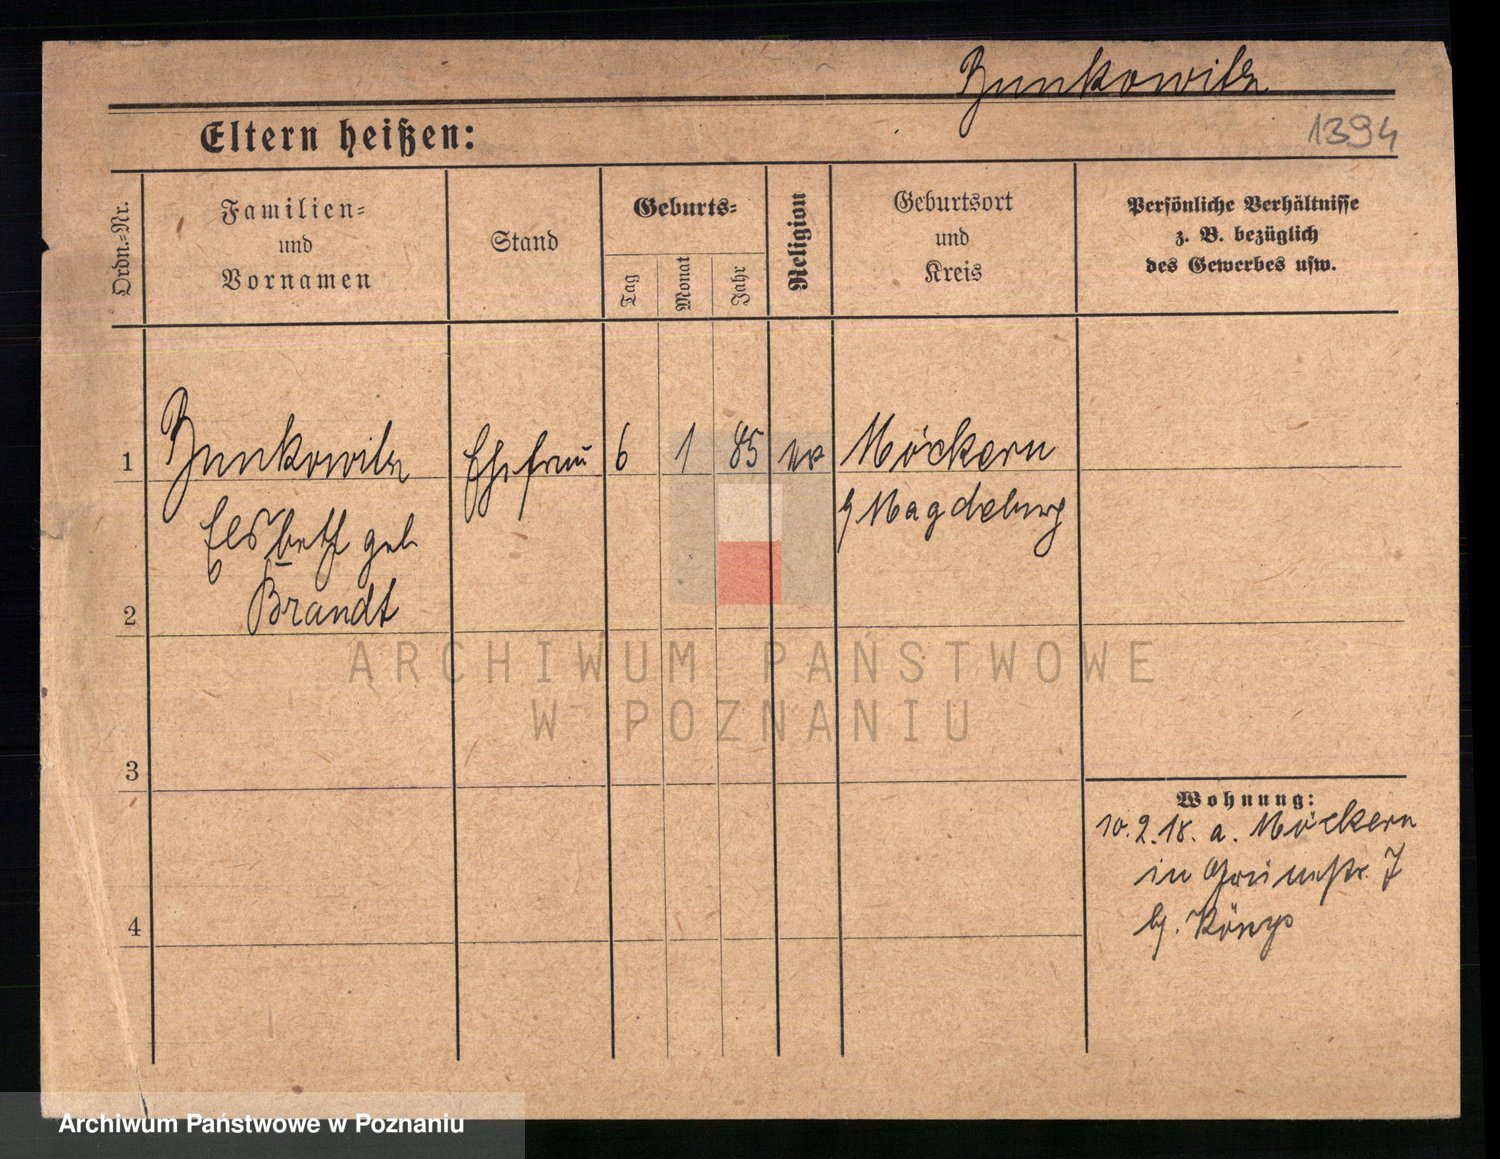 Bunkowitz
1394
Eltern heißen:
Ordn.-Nr.
Familien-
und
Vornamen
Stand
Geburts-
Tag
Monat
Jahr
Religion
Geburtsort
und
Kreis
Persönliche Verhältnisse
z. B. bezüglich
des Gewerbes usw.
1 Bunkowitz Ehefrau 6 1 85 ev Möckern
Elsbeth geb Magdeburg
2 Brandt
ARCHIWUM PAŃSTWOWE
W POZNANIU
3
Wohnung:
10.2.18. a. Möckern
in Grünestr. 7
4 b/.
Archiwum Państwowe w Poznaniu